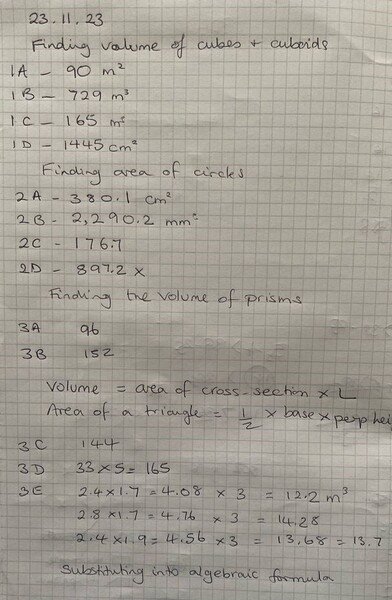 23.11.23
Finding volume of cubes + cuboids
1A - 90 m²
1B - 729 m³
1C - 165 m³
1D - 1445 cm²
Finding area of circles
2A - 380.1 cm²
2B - 2,290.2 mm²
2C - 176.7
2D - 897.2 x
Finding the volume of prisms
3A 96
3B 152
Volume = area of cross-section × L
Area of a triangle = 1/2 × base × perp hei
3C 144
3D 33×5=165
3E 2.4×1.7=4.08 × 3 = 12.2 m³
2.8×1.7=4.76 × 3 = 14.28
2.4×1.9=4.56 ×3 = 13.68 = 13.7
Substituting into algebraic formula